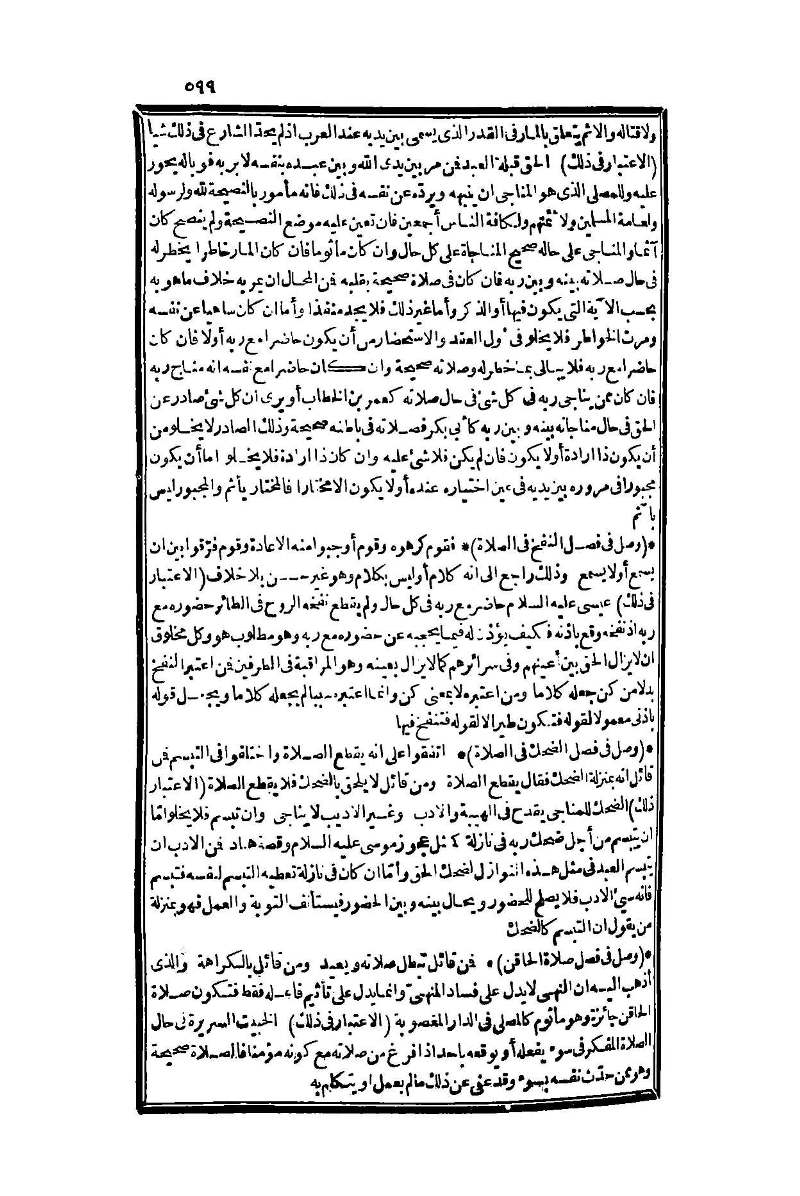 ٥٩٩
ولا قتاله والاثم يتعلق بالمار في القدر الذي يسمى بين يديه عند العرب اذ لم يحد الشارع في ذلك شيأ
(الاعتبار في ذلك) الحق قبلة العبد فمن مر بين يدى الله وبين عبده بنفسه لا بربه فوباله يحور
عليه وللمصلى الذي هو المناجى ان ينبهه ويرده عن نفسه في ذلك فانه مأمور بالنصيحة لله ولرسوله
ولعامة المسلمين ولائمتهم ولكافة الناس أجمعين فان تعين عليه موضع النصيحة ولم ينصح كان
آثما والمناجى على حاله صحيح المناجاة على كل حال وان كان مأثوما فان كان المار خاطرا يخطر له
في حال صلاته بينه وبين ربه فان كان في صلاة صحيحة بقلبه فمن المحال ان يمر به خلاف ما هو به
بحسب الآية التي يكون فيها أو الذكر وأما غير ذلك فلا يجد منفذا وأما ان كان ساهيا عن نفسه
ومرت الخواطر فلا يخلو في أول العقد والاستحضار من أن يكون حاضرا مع ربه أولا فان كان
حاضرا مع ربه فلا يبالى بما خطر له وصلاته صحيحة وان كان حاضرا مع نفسه انه مناج ربه
فان كان ممن يناجى ربه في كل شئ في حال صلاته كعمر بن الخطاب أو يرى ان كل شئ صادر عن
الحق في حال مناجاته بينه وبين ربه كأبى بكر فصلاته في باطنه صحيحة وذلك الصادر لا يخلو من
أن يكون ذا ارادة أولا يكون فان لم يكن فلا شئ عليه وان كان ذا ارادة فلا يخلو اما أن يكون
مجبورا في مروره بين يديه في عين اختياره عنده أولا يكون الا مختارا فالمختار يأثم والمجبور ليس
بآثم
*(وصل في فصل النفخ في الصلاة)* فقوم كرهوه وقوم أوجبوا منه الاعادة وقوم فرقوا بين ان
يسمع أولا يسمع وذلك راجع الى انه كلام أو ليس بكلام وهو غير حسن بلا خلاف (الاعتبار
في ذلك) عيسى عليه السلام حاضر مع ربه في كل حال ولم يقطع نفخه الروح في الطائر حضوره مع
ربه اذ نفخه وقع باذنه فكيف يؤذن له فيما يحجبه عن حضوره مع ربه وهو مطلوب هو وكل مخلوق
ان لا يزال الحق بين أعينهم وفي سرائرهم كما لا يزال بعينه وهو المراقبة في الطرفين فمن اعتبر النفخ
بدلا من كن جعله كلاما ومن اعتبره لا بمعنى كن وانما اعتبره سببا لم يجعله كلاما ويجعل قوله
باذنى معمولا لقوله فتكون طيرا لا لقوله فتنفخ فيها
*(وصل في فصل الضحك في الصلاة)* اتفقوا على انه يقطع الصلاة واختلفوا في التبسم فمن
قائل انه بمنزلة الضحك فقال يقطع الصلاة ومن قائل لا يلحق بالضحك فلا يقطع الصلاة (الاعتبار
ذلك) الضحك للمناجى يقدح في الهيبة والادب وغير الاديب لا يناجى وان تبسم فلا يخلو اما
ان يتبسم من أجل ضحك ربه في نازلة كمثل عجوز موسى عليه السلام وقصة هناد فمن الادب ان
يتبسم العبد في مثل هذه النوازل لضحك الحق وأما ان كان في نازلة تعطيه التبسم لنفسه فتبسم
فانه سيئ الادب فلا يصلح للحضور ويحال بينه وبين الحضور فيستأنف التوبة والعمل فهو بمنزلة
من يقول ان التبسم كالضحك
*(وصل في فصل صلاة الحاقن)* فمن قائل تبطل صلاته ويعيد ومن قائل بالكراهة والذي
أذهب اليه ان النهى لا يدل على فساد المنهى وانما يدل على تأثيم فاعله فقط فتكون صلاة
الحاقن جائزة وهو مأثوم كالمصلى في الدار المغصوبة (الاعتبار في ذلك) الخبيث السريرة في حال
الصلاة المفكر في سوء يفعله أو يوقعه باحد اذا فرغ من صلاته مع كونه مؤمنا فالصلاة صحيحة
وهو ممن حدث نفسه بسوء وقد عفى عن ذلك مالم يعمل أو يتكلم به